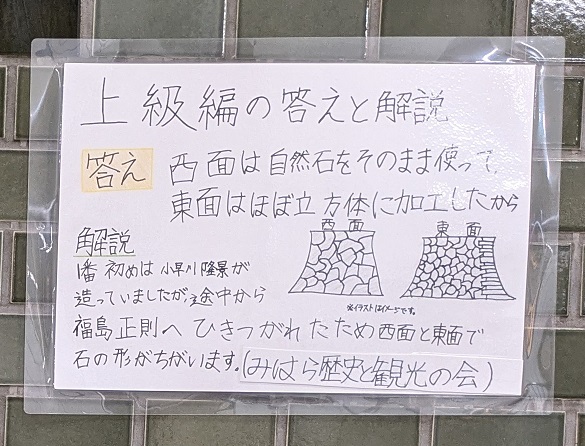 上級編の答えと解説
答え
西面は自然石をそのまま使って、
東面はほぼ立方体に加工したから
西面
東面
※イラストはイメージです。
解説
1番初めは小早川隆景が
造っていましたが、途中から
福島正則へひきつがれたため西面と東面で
石の形がちがいます。(みはら歴史と観光の会)